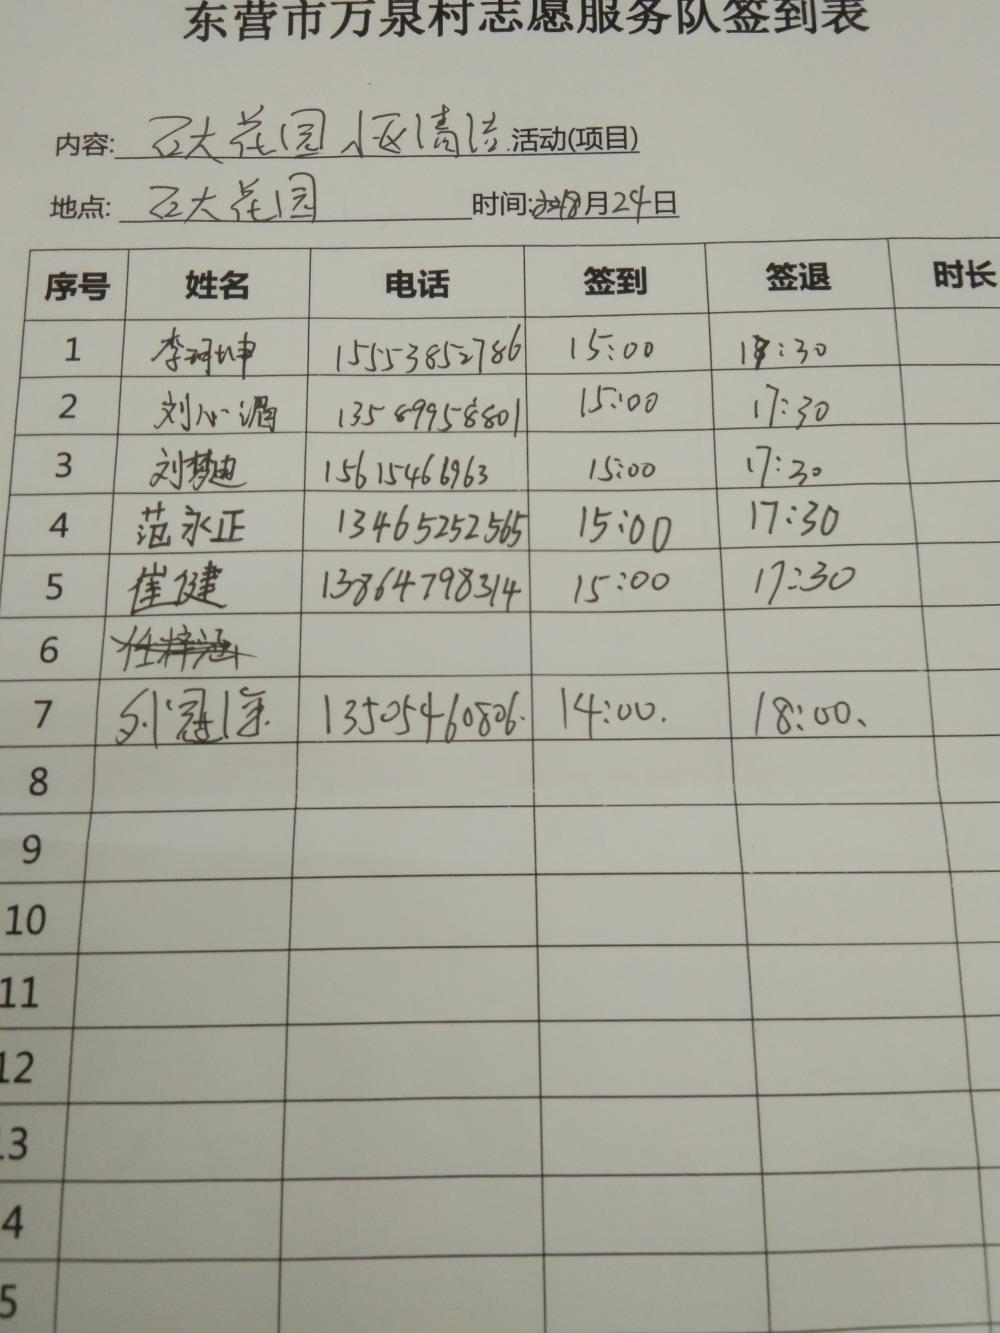 东营市万泉村志愿服务队签到表
内容: 石大花园小区清洁 活动(项目)
地点: 石大花园 时间: 8月24日
序号 姓名 电话 签到 签退 时长
1 李珂坤 15553852786 15:00 17:30
2 刘心湄 13589958801 15:00 17:30
3 刘梦迪 15615466963 15:00 17:30
4 范永正 13465252565 15:00 17:30
5 崔健 13864798314 15:00 17:30
6
7 刘冠 13505460806. 14:00. 18:00、
8
9
10
11
12
13
4
5